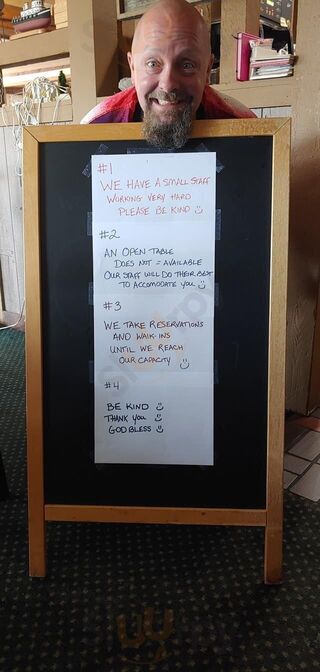 #1
WE HAVE A SMALL STAFF
WORKING VERY HARD
PLEASE BE KIND
#2
AN OPEN TABLE
DOES NOT = AVAILABLE
OUR STAFF WILL DO THEIR BEST
TO ACCOMODATE YOU
#3
WE TAKE RESERVATIONS
AND WALK-INS
UNTIL WE REACH
OUR CAPACITY
#4
BE KIND
THANK YOU
GOD BLESS